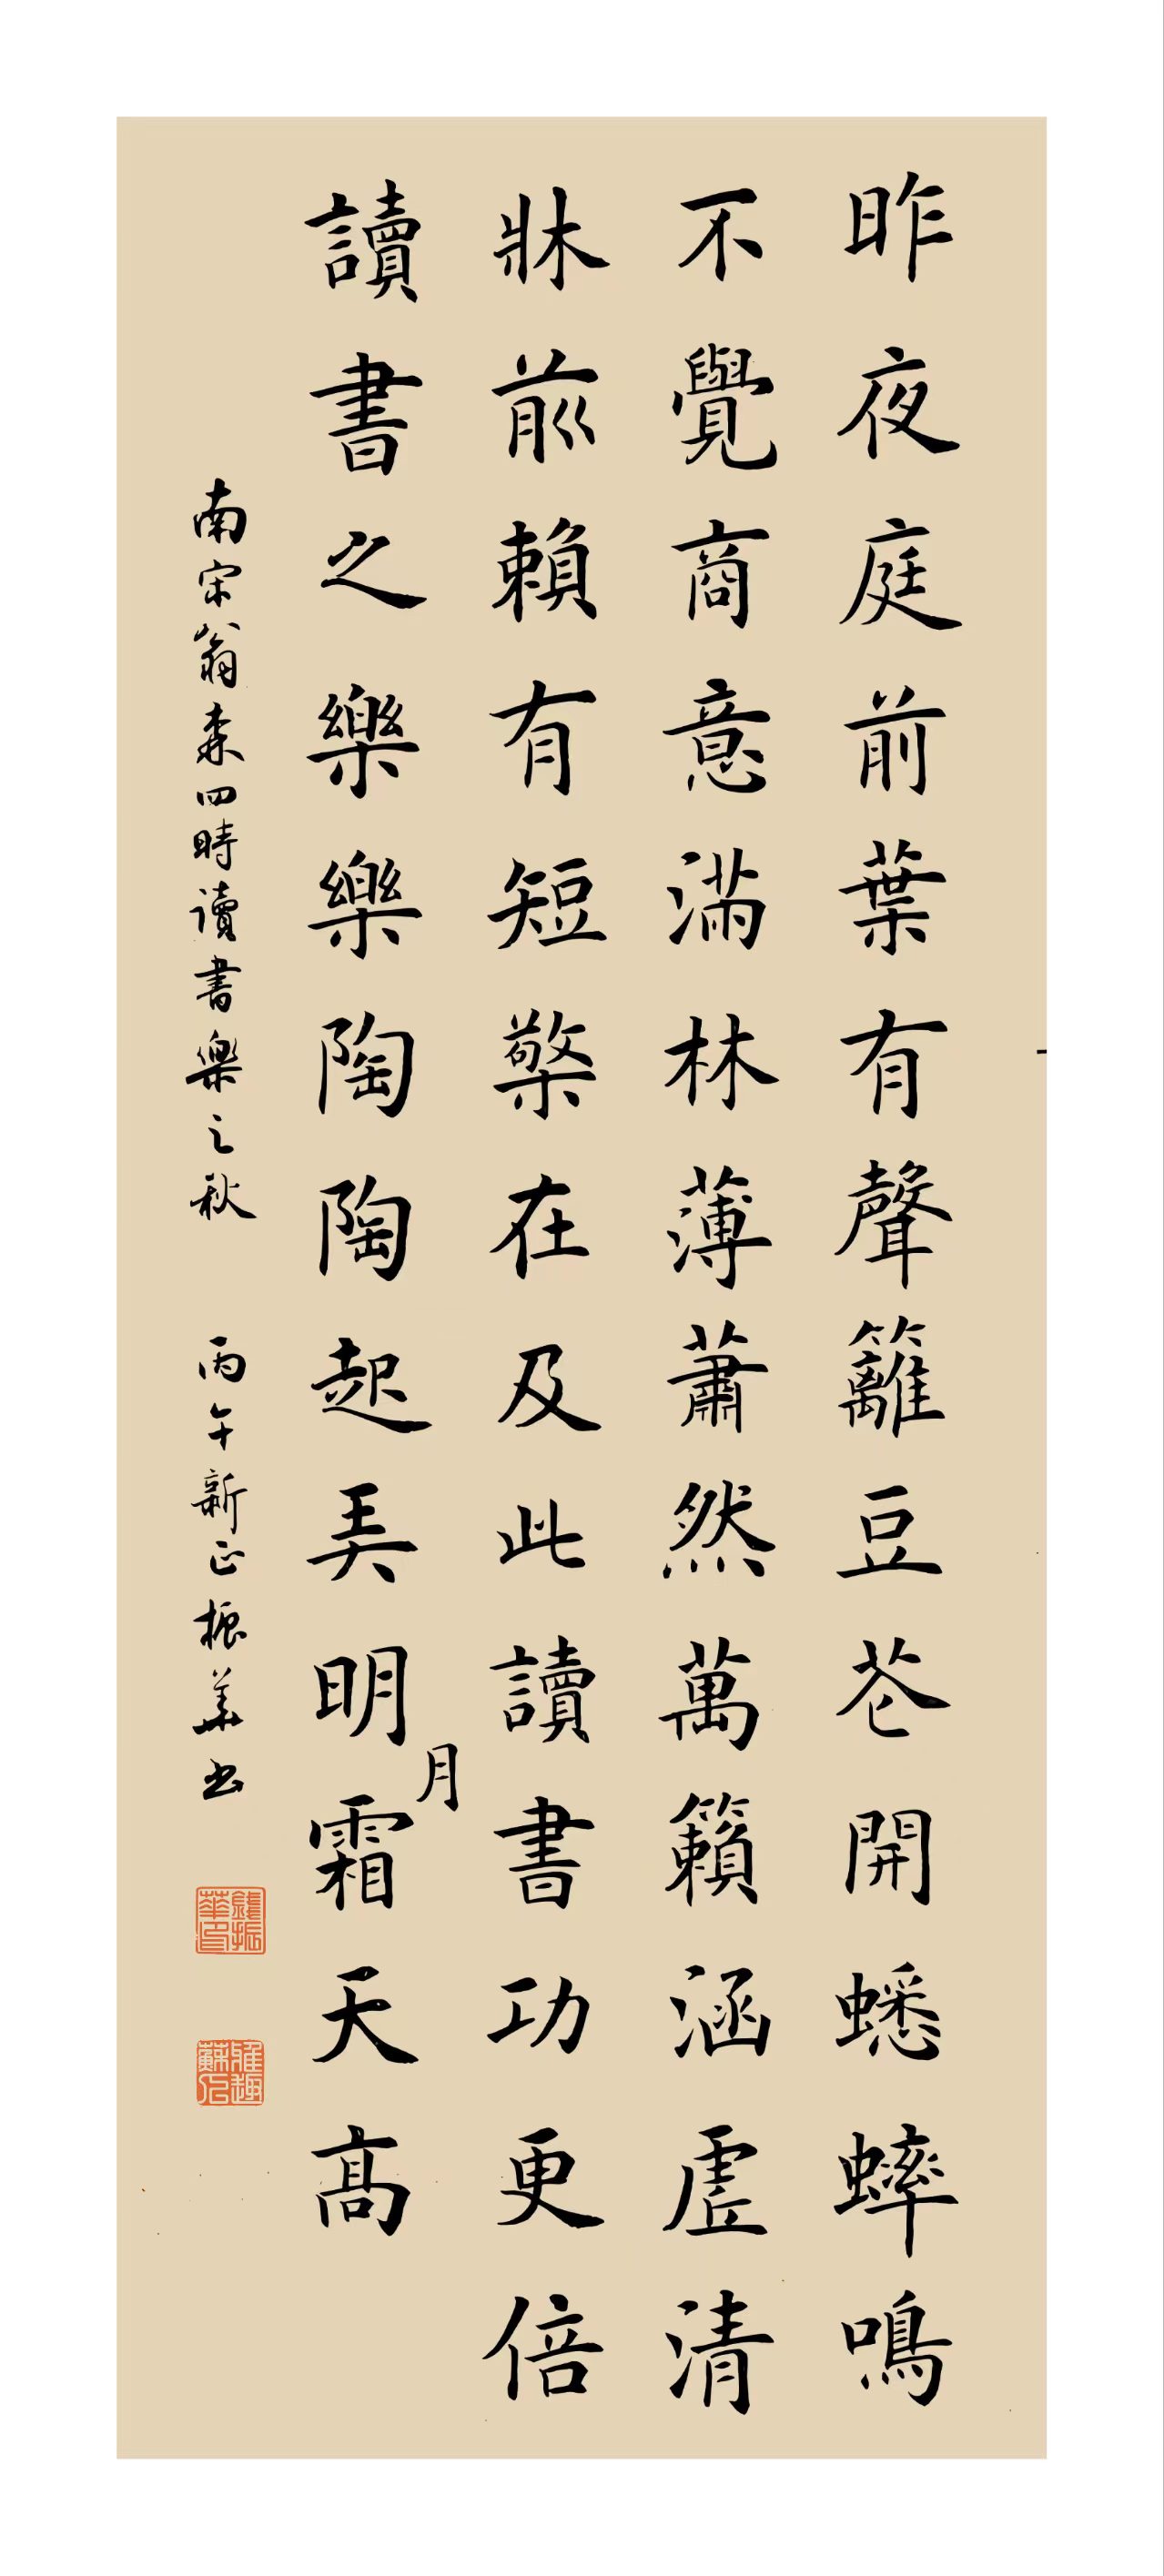 昨夜庭前葉有聲籬豆花開蟋蟀鳴
不覺商意滿林薄蕭然萬籟涵虛清
牀前賴有短檠在及此讀書功更倍
讀書之樂樂陶陶起弄明月霜天高
南宋翁森四時讀書樂之秋 丙午新正振華书
錢振華印